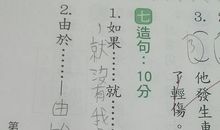 3. 他發生車
了輕傷。
七 造句：10分
1. 如果……就
就沒有我
2. 由於……
由於
第